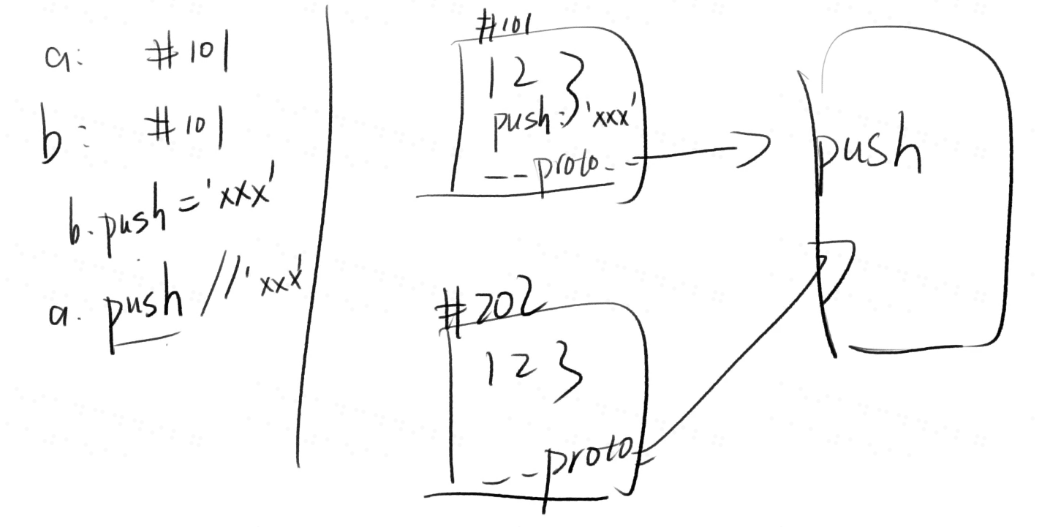 a: #101
b: #101
b.push='xxx'
a.push //'xxx'
#101
1 2 3
push:'xxx'
__proto__
#202
1 2 3
__proto__
push